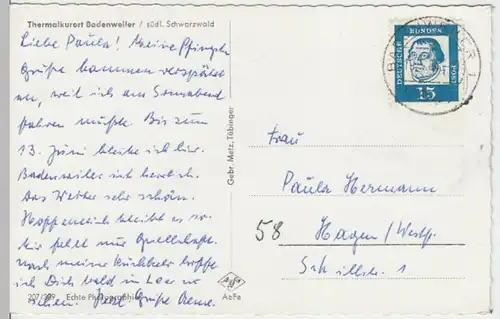 Thermalkurort Badenweiler / südl. Schwarzwald
Liebe Paula! Meine Pfingst-
Grüße kommen verspätet
an, weil ich am Sonnabend
fahren mußte. Bis zum
13. Juni bleibe ich hier.
Badenweiler ist herrlich.
Das Wetter sehr schön.
Hoffentlich bleibt es so.
Mir fehlt nur Gesellschaft.
Nach meiner Rückkehr hoffe
ich Dich bald in
sehen. Herzl. Grüße
207/399 Echte Photographie
Gebr. Metz, Tübingen
AeFe
DEUTSCHE BUNDESPOST
15
Frau
Paula Hermann
58 Hagen/Westf.
Schillstr. 1